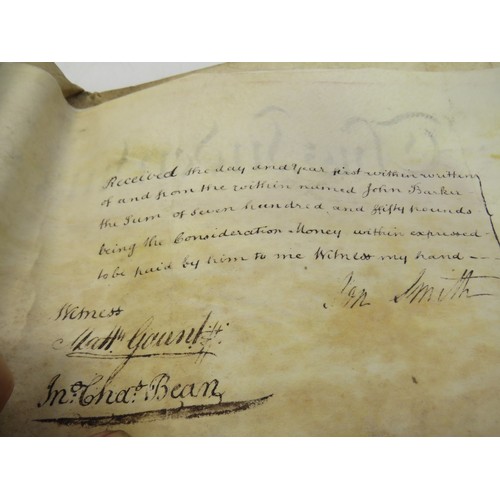 Received the day and Year first within written
of and from the within named John Barker
the Sum of Seven hundred and fifty pounds
being the Consideration Money within expressed
to be paid by him to me Witness my hand
Jon Smith
Witness
Matt.
Jn.o Cha.s Bean